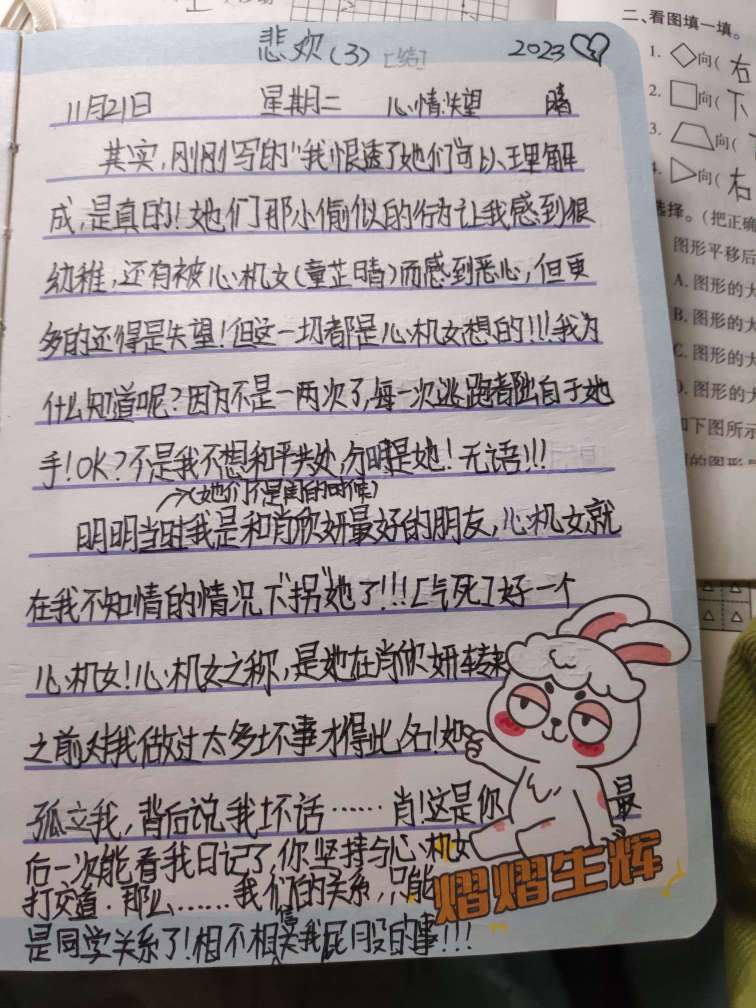 悲欢(3) [结] 2023
11月21日 星期二 心情:失望 晴
其实,刚刚写的"我恨透了她们"可以理解
成,是真的!她们那小偷似的行为让我感到很
幼稚,还有被心机女(童芷晴)而感到恶心,但更
多的还得是失望!但这一切都是心机女想的!!!我为
什么知道呢?因为不是一两次了,每一次逃跑都出自于她
手!OK?不是我不想和平共处,分明是她!无语!!!
(她们不是闺的时候)
明明当时我是和肖欣妍最好的朋友,心机女就
在我不知情的情况下"拐"她了!!![气死]好一个
心机女!心机女之称,是她在肖欣妍转来
之前对我做过太多坏事才得此名!如
孤立我,背后说我坏话……肖!这是你最
后一次能看我日记了,你坚持与心机女
打交道.那么……我们的关系,只能
是同学关系了!相不相信关我屁股的事!!!
熠熠生辉
二、看图填一填。
1. 向( 右
2. 向( 下
3. 向(
4. 向( 右
选择。(把正确
图形平移后
A. 图形的大
B. 图形的大
C. 图形的大
D. 图形的大
如下图所示